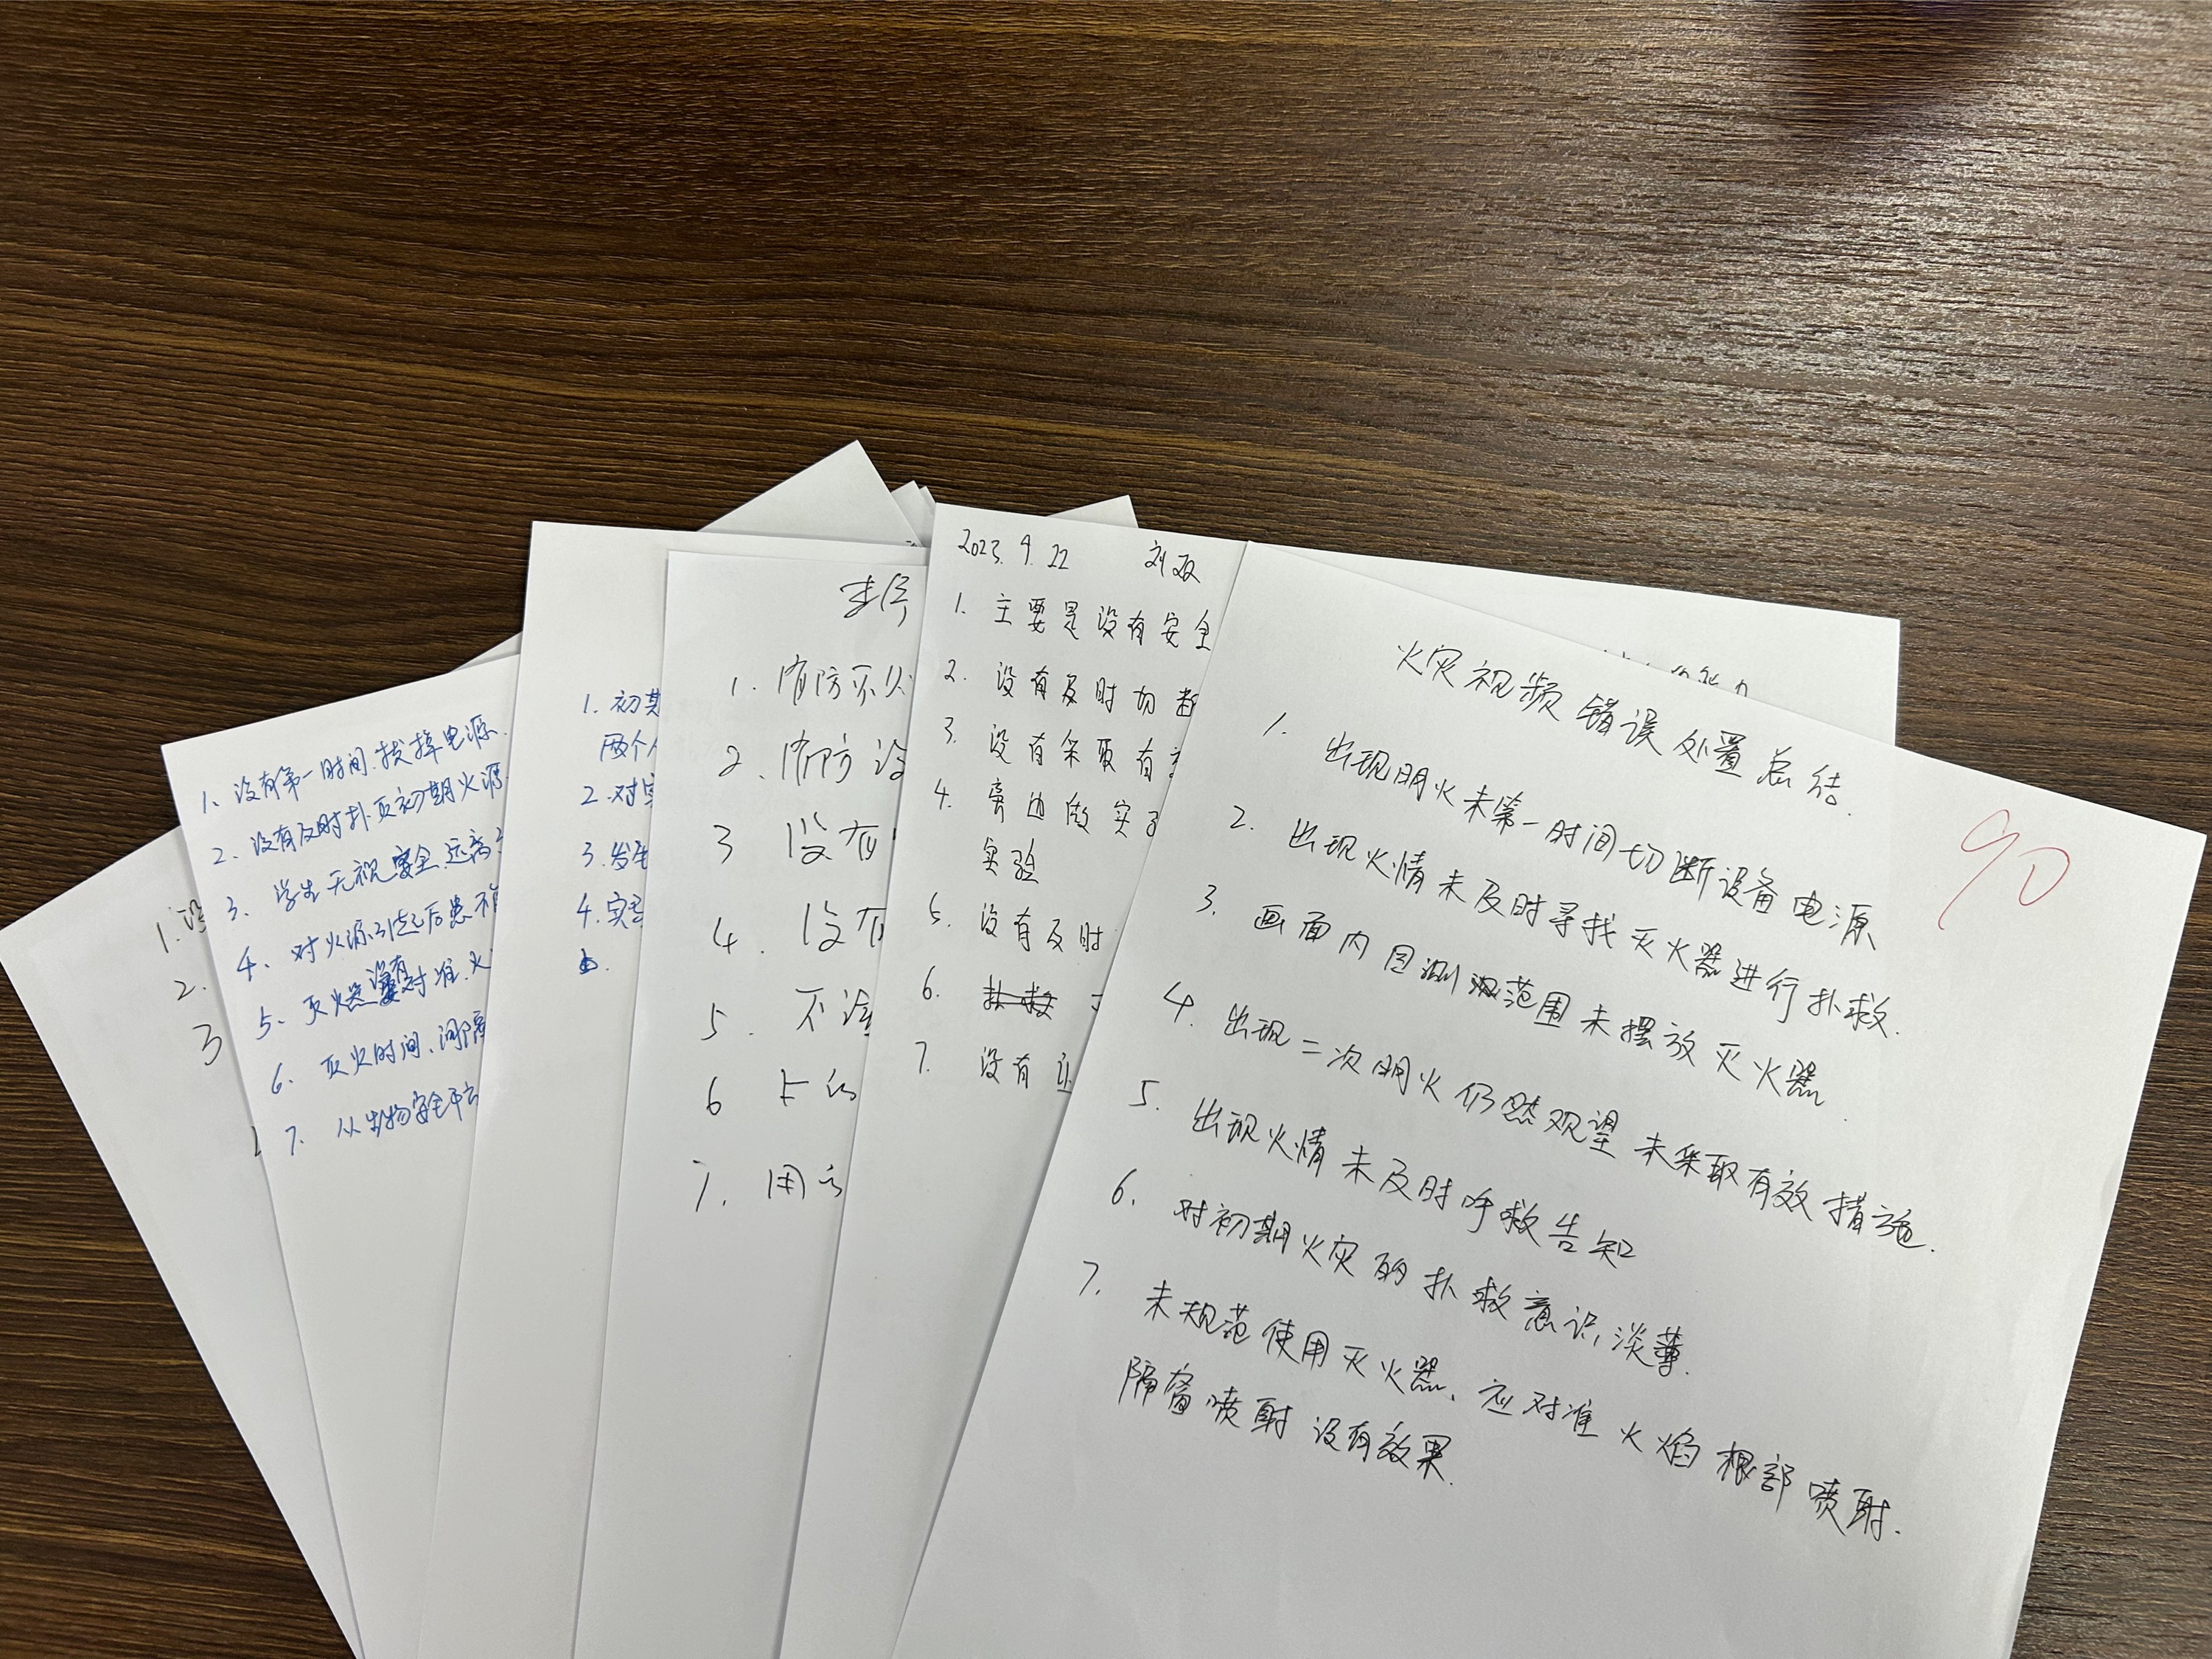 火灾视频错误处置总结.
90
1. 出现明火未第一时间切断设备电源
2. 出现火情未及时寻找灭火器进行扑救.
3. 画面内目测范围未摆放灭火器.
4. 出现二次明火仍然观望未采取有效措施.
5. 出现火情未及时呼救告知
6. 对初期火灾的扑救意识淡薄.
7. 未规范使用灭火器、应对准火焰根部喷射.
隔窗喷射没有效果.
2023. 9. 22
1. 主要是没有安全
2. 没有及时切断
3. 没有采取有
4. 旁边做实
实验
5. 没有及时
6.
7. 没有
1. 消防灭火
2. 消防设
3 没有
4. 没有
5. 不
6
7. 用
1. 初期
两个人
2. 对实
3. 发生
4. 实
1、没有第一时间、拔掉电源.
2、没有及时扑灭初期火源.
3、学生无视安全、远离
4、对火源引起后患不
5、灭火器没有对准、火
6、灭火时间、间隔
7、从生物安全平台
1. 没
2.
3